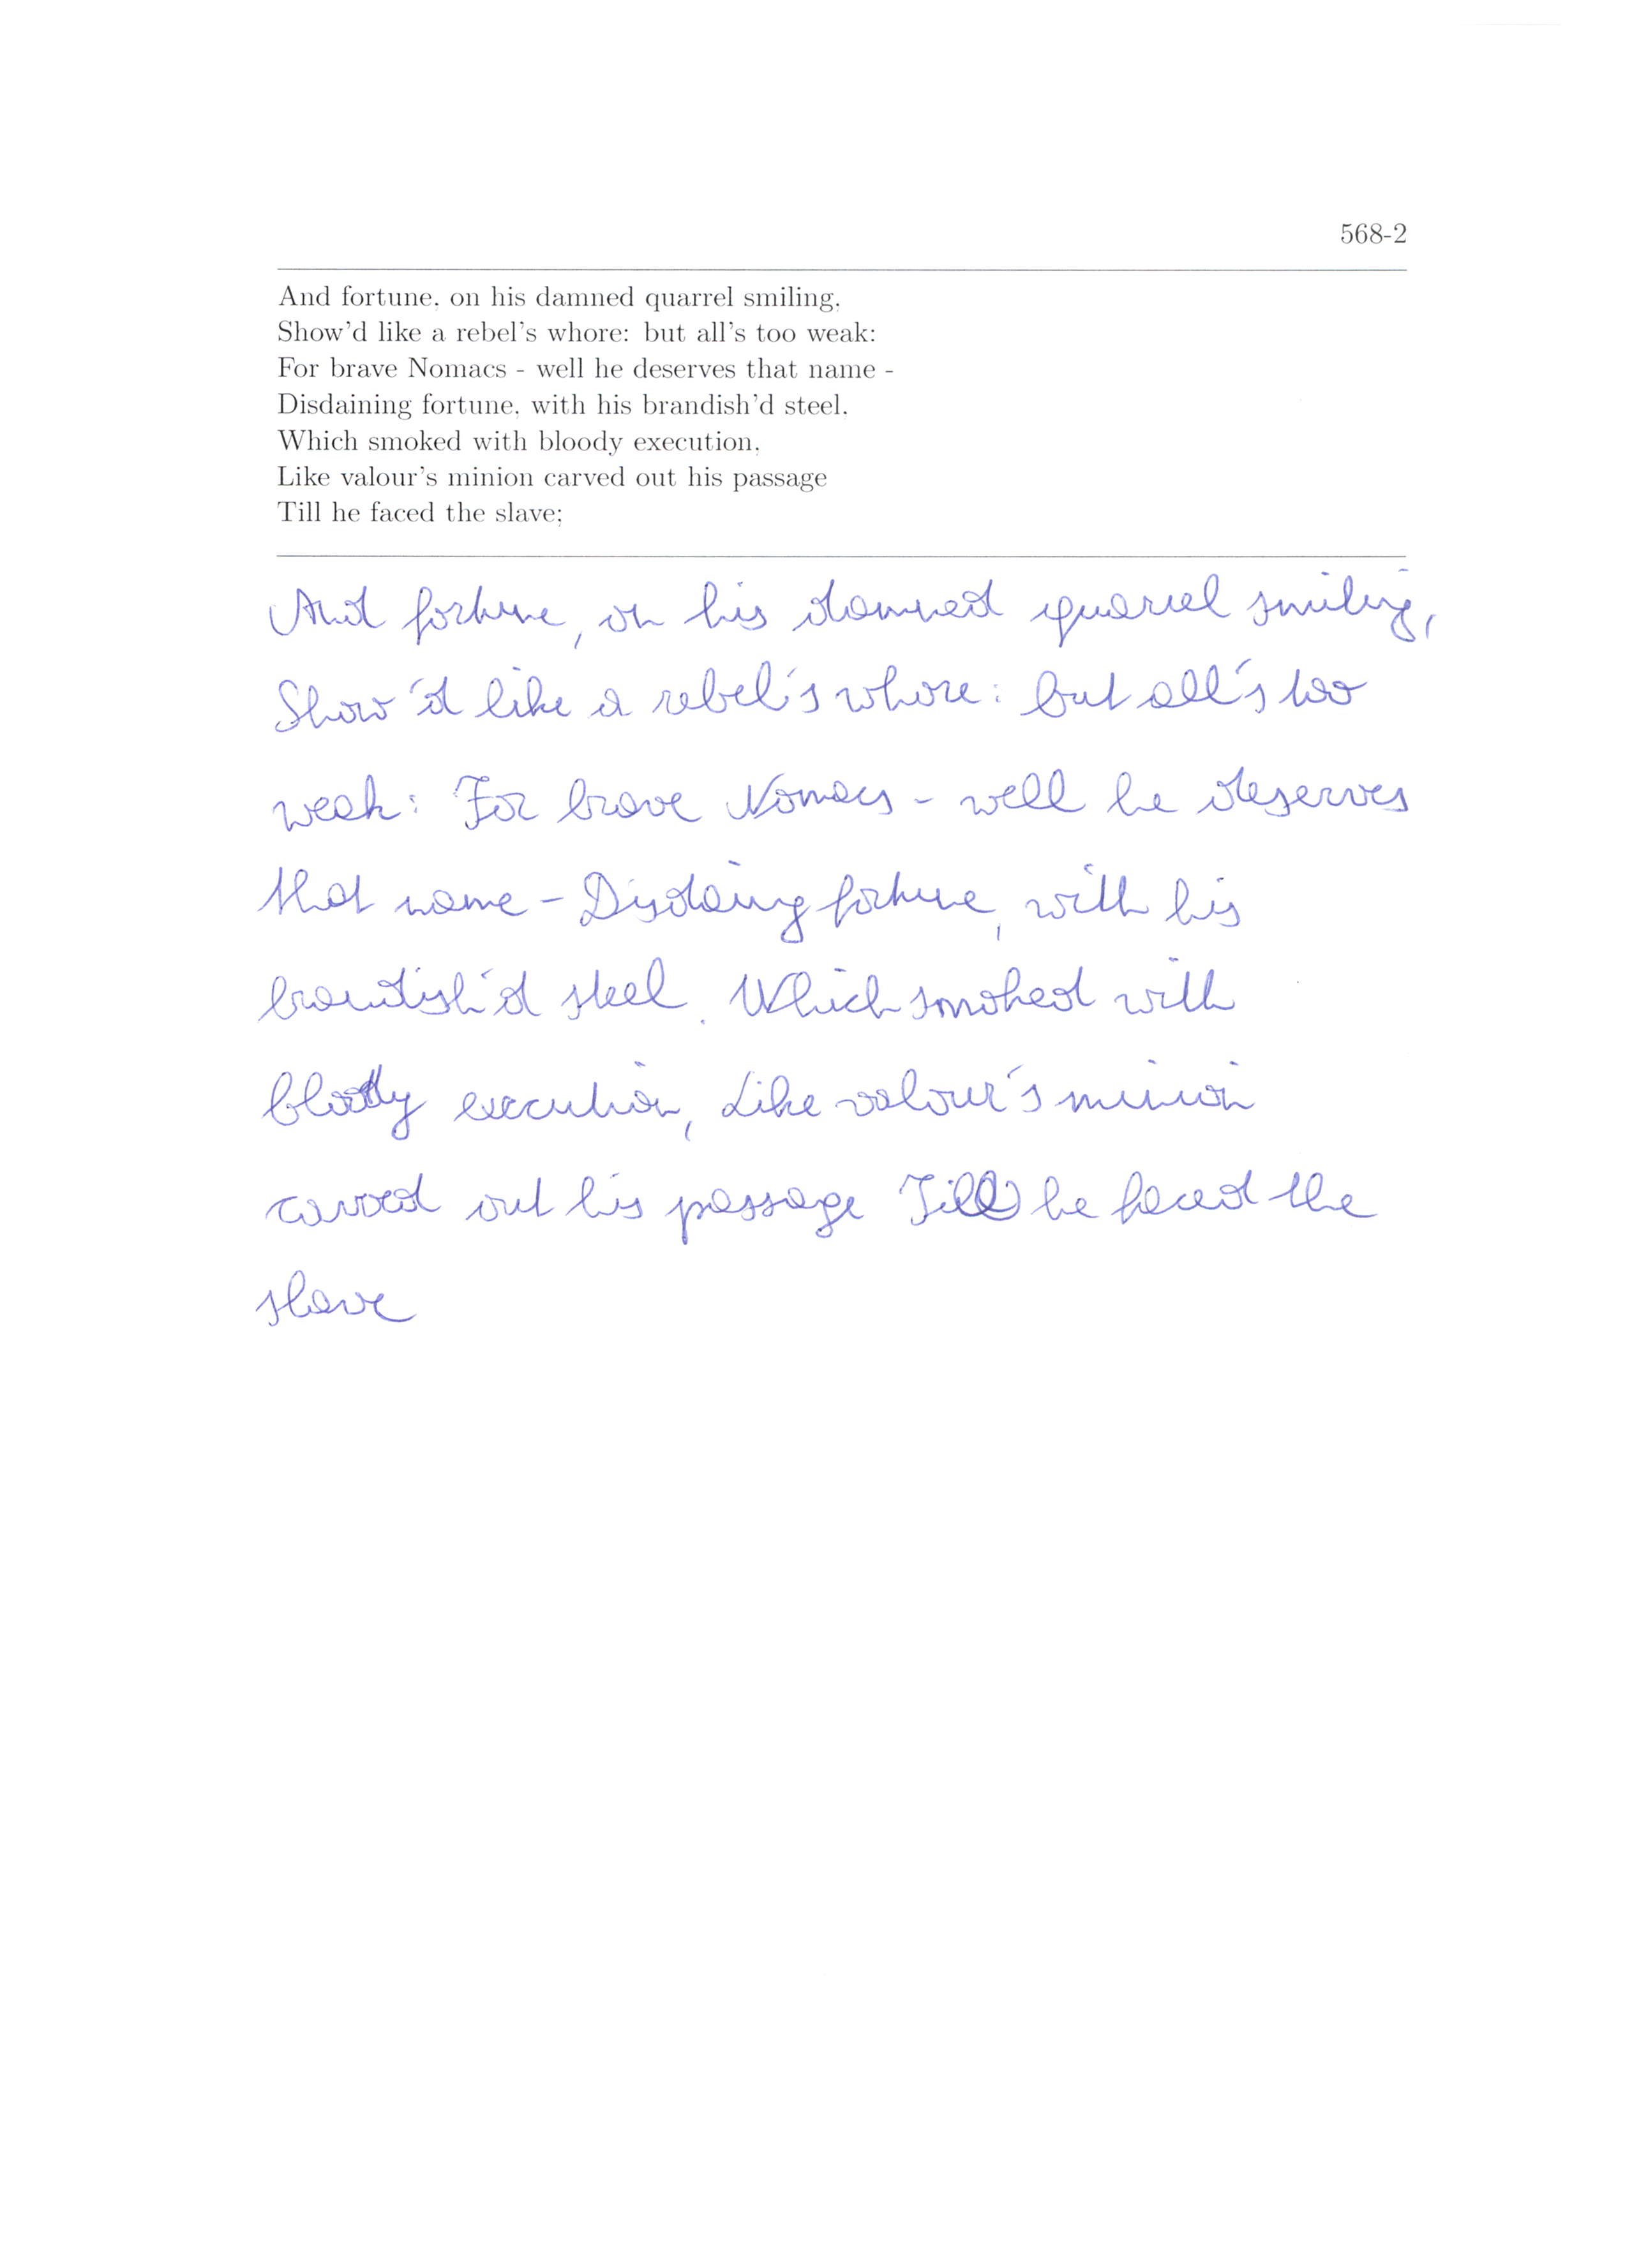 568-2
And fortune, on his damned quarrel smiling,
Show'd like a rebel's whore: but all's too weak:
For brave Nomacs - well he deserves that name -
Disdaining fortune, with his brandish'd steel,
Which smoked with bloody execution,
Like valour's minion carved out his passage
Till he faced the slave;
And fortune, on his damned quarrel smiling,
Show'd like a rebel's whore: but all's too
weak: For brave Nomacs - well he deserves
that name - Disdaing fortune, with his
brandish'd steel. Which smoked with
bloody execution, Like valour's minion
carved out his passage Till he faced the
slave